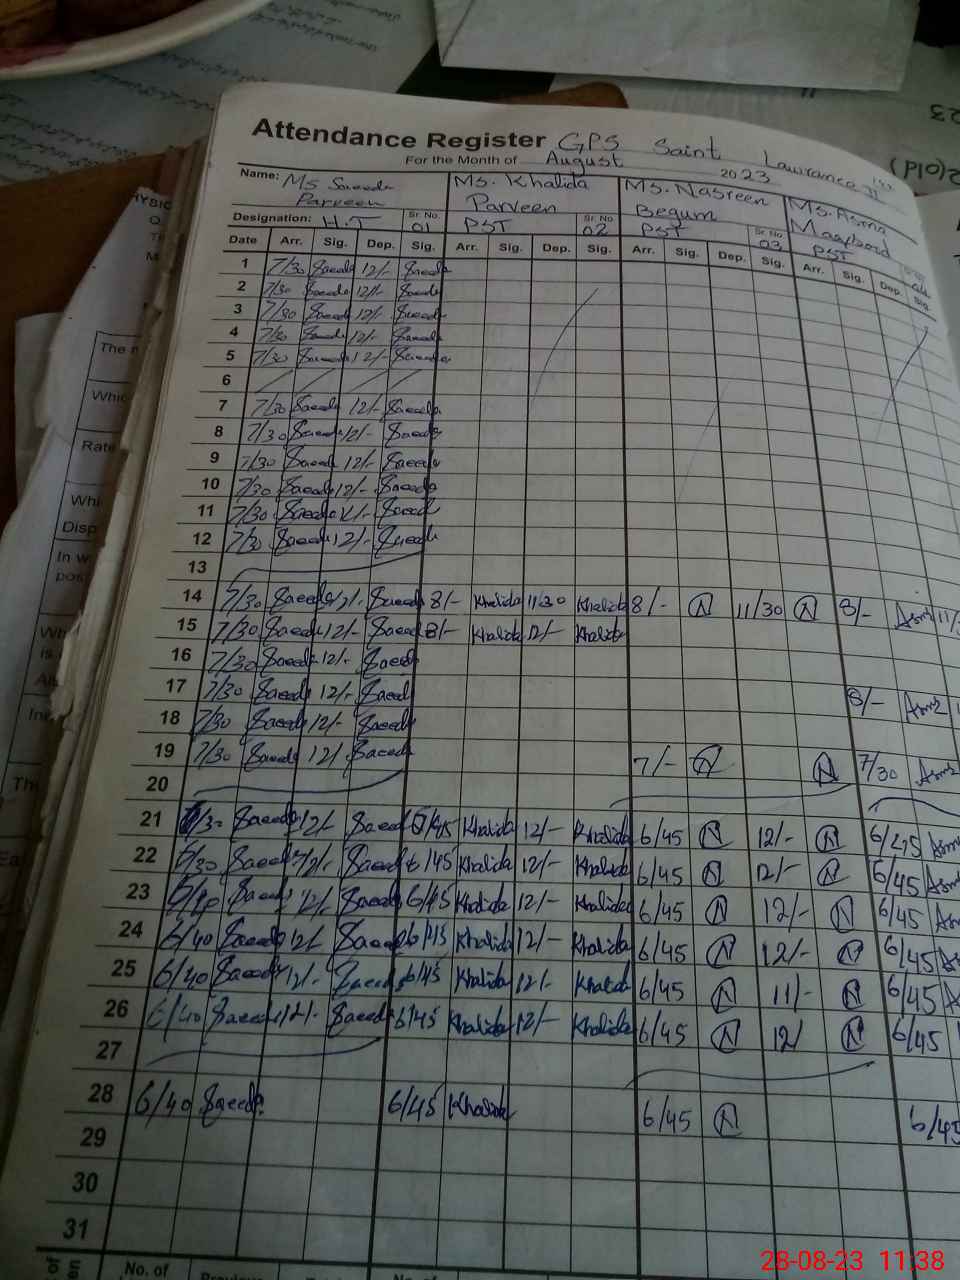 Attendance Register GPS Saint Lawrance
For the Month of August 2023
Name: Ms Saeeda Parveen Ms. Khalida Parveen Ms. Nasreen Begum Ms. Asma
Designation: H.T Sr. No. 01 PST Sr. No. 02 PST Sr. No. 03 PST
Date Arr. Sig. Dep. Sig. Arr. Sig. Dep. Sig. Arr. Sig. Dep. Sig. Arr. Sig. Dep. Sig.
1 7/30 Saeeda 12/- Saeeda
2 7/30 Saeeda 12/- Saeeda
3 7/30 Saeeda 12/- Saeeda
4 7/30 Saeeda 12/- Saeeda
5 7/30 Saeeda 12/- Saeeda
6
7 7/30 Saeeda 12/- Saeeda
8 7/30 Saeeda 12/- Saeeda
9 7/30 Saeeda 12/- Saeeda
10 7/30 Saeeda 12/- Saeeda
11 7/30 Saeeda 12/- Saeeda
12 7/30 Saeeda 12/- Saeeda
13
14 7/30 Saeeda 12/- Saeeda 8/- Khalida 11/30 Khalida 8/- N 11/30 N 8/- Asma
15 7/30 Saeeda 12/- Saeeda 8/- Khalida 12/- Khalida
16 7/30 Saeeda 12/- Saeeda
17 7/30 Saeeda 12/- Saeeda 8/- Asma
18 7/30 Saeeda 12/- Saeeda
19 7/30 Saeeda 12/- Saeeda 7/- N N 7/30 Asma
20
21 Saeeda 12/- Saeeda Khalida 12/- Khalida 6/45 N 12/- N 6/45
22 Saeeda 12/- Saeeda 6/45 Khalida 12/- Khalida 6/45 N 12/- N 6/45
23 Saeeda 12/- Saeeda 6/45 Khalida 12/- Khalida 6/45 N 12/- N 6/45
24 6/40 Saeeda 12/- Saeeda 6/45 Khalida 12/- Khalida 6/45 N 12/- N 6/45
25 6/40 Saeeda 12/- Saeeda 6/45 Khalida 12/- Khalida 6/45 N 11/- N 6/45
26 6/40 Saeeda 12/- Saeeda 6/45 Khalida 12/- Khalida 6/45 N 12/ N 6/45
27
28 6/40 Saeeda 6/45 Khalida 6/45 N 6/45
29
30
31
No. of No. of
28-08-23 11:38